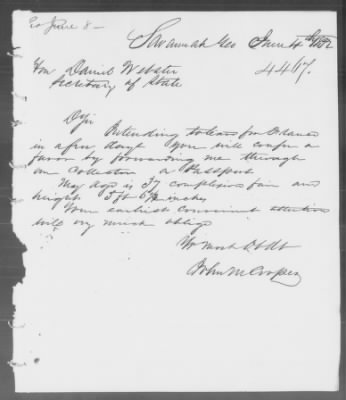 June 8 -
Savannah Geo June 4th 1852
Hon Daniel Webster
4467.
Secretary of State
D Sir
Intending to leave for
in a few days you will confer a
favor by forwarding me through
our collector a Passport
My age is 37 complexion fair and
height 5 ft 8½ inches
Your earliest convenient attention
will very much oblige
Yr most Obt St
John M Cooper